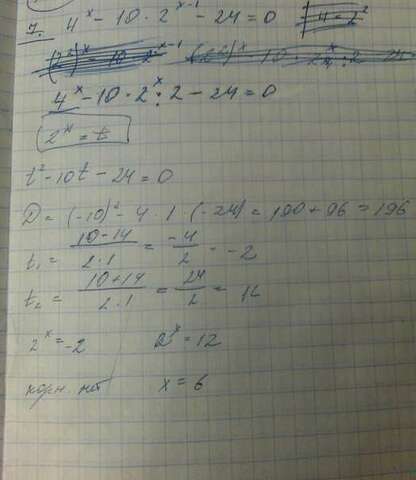 7. 4^x - 10 · 2^{x-1} - 24 = 0 | 4 = 2^2
4^x - 10 · 2^x : 2 - 24 = 0
2^x = t
t^2 - 10t - 24 = 0
D = (-10)^2 - 4 · 1 · (-24) = 100 + 96 = 196
t_1 = \frac{10-14}{2·1} = \frac{-4}{2} = -2
t_2 = \frac{10+14}{2·1} = \frac{24}{2} = 12
2^x = -2 2^x = 12
корн. нет x = 6